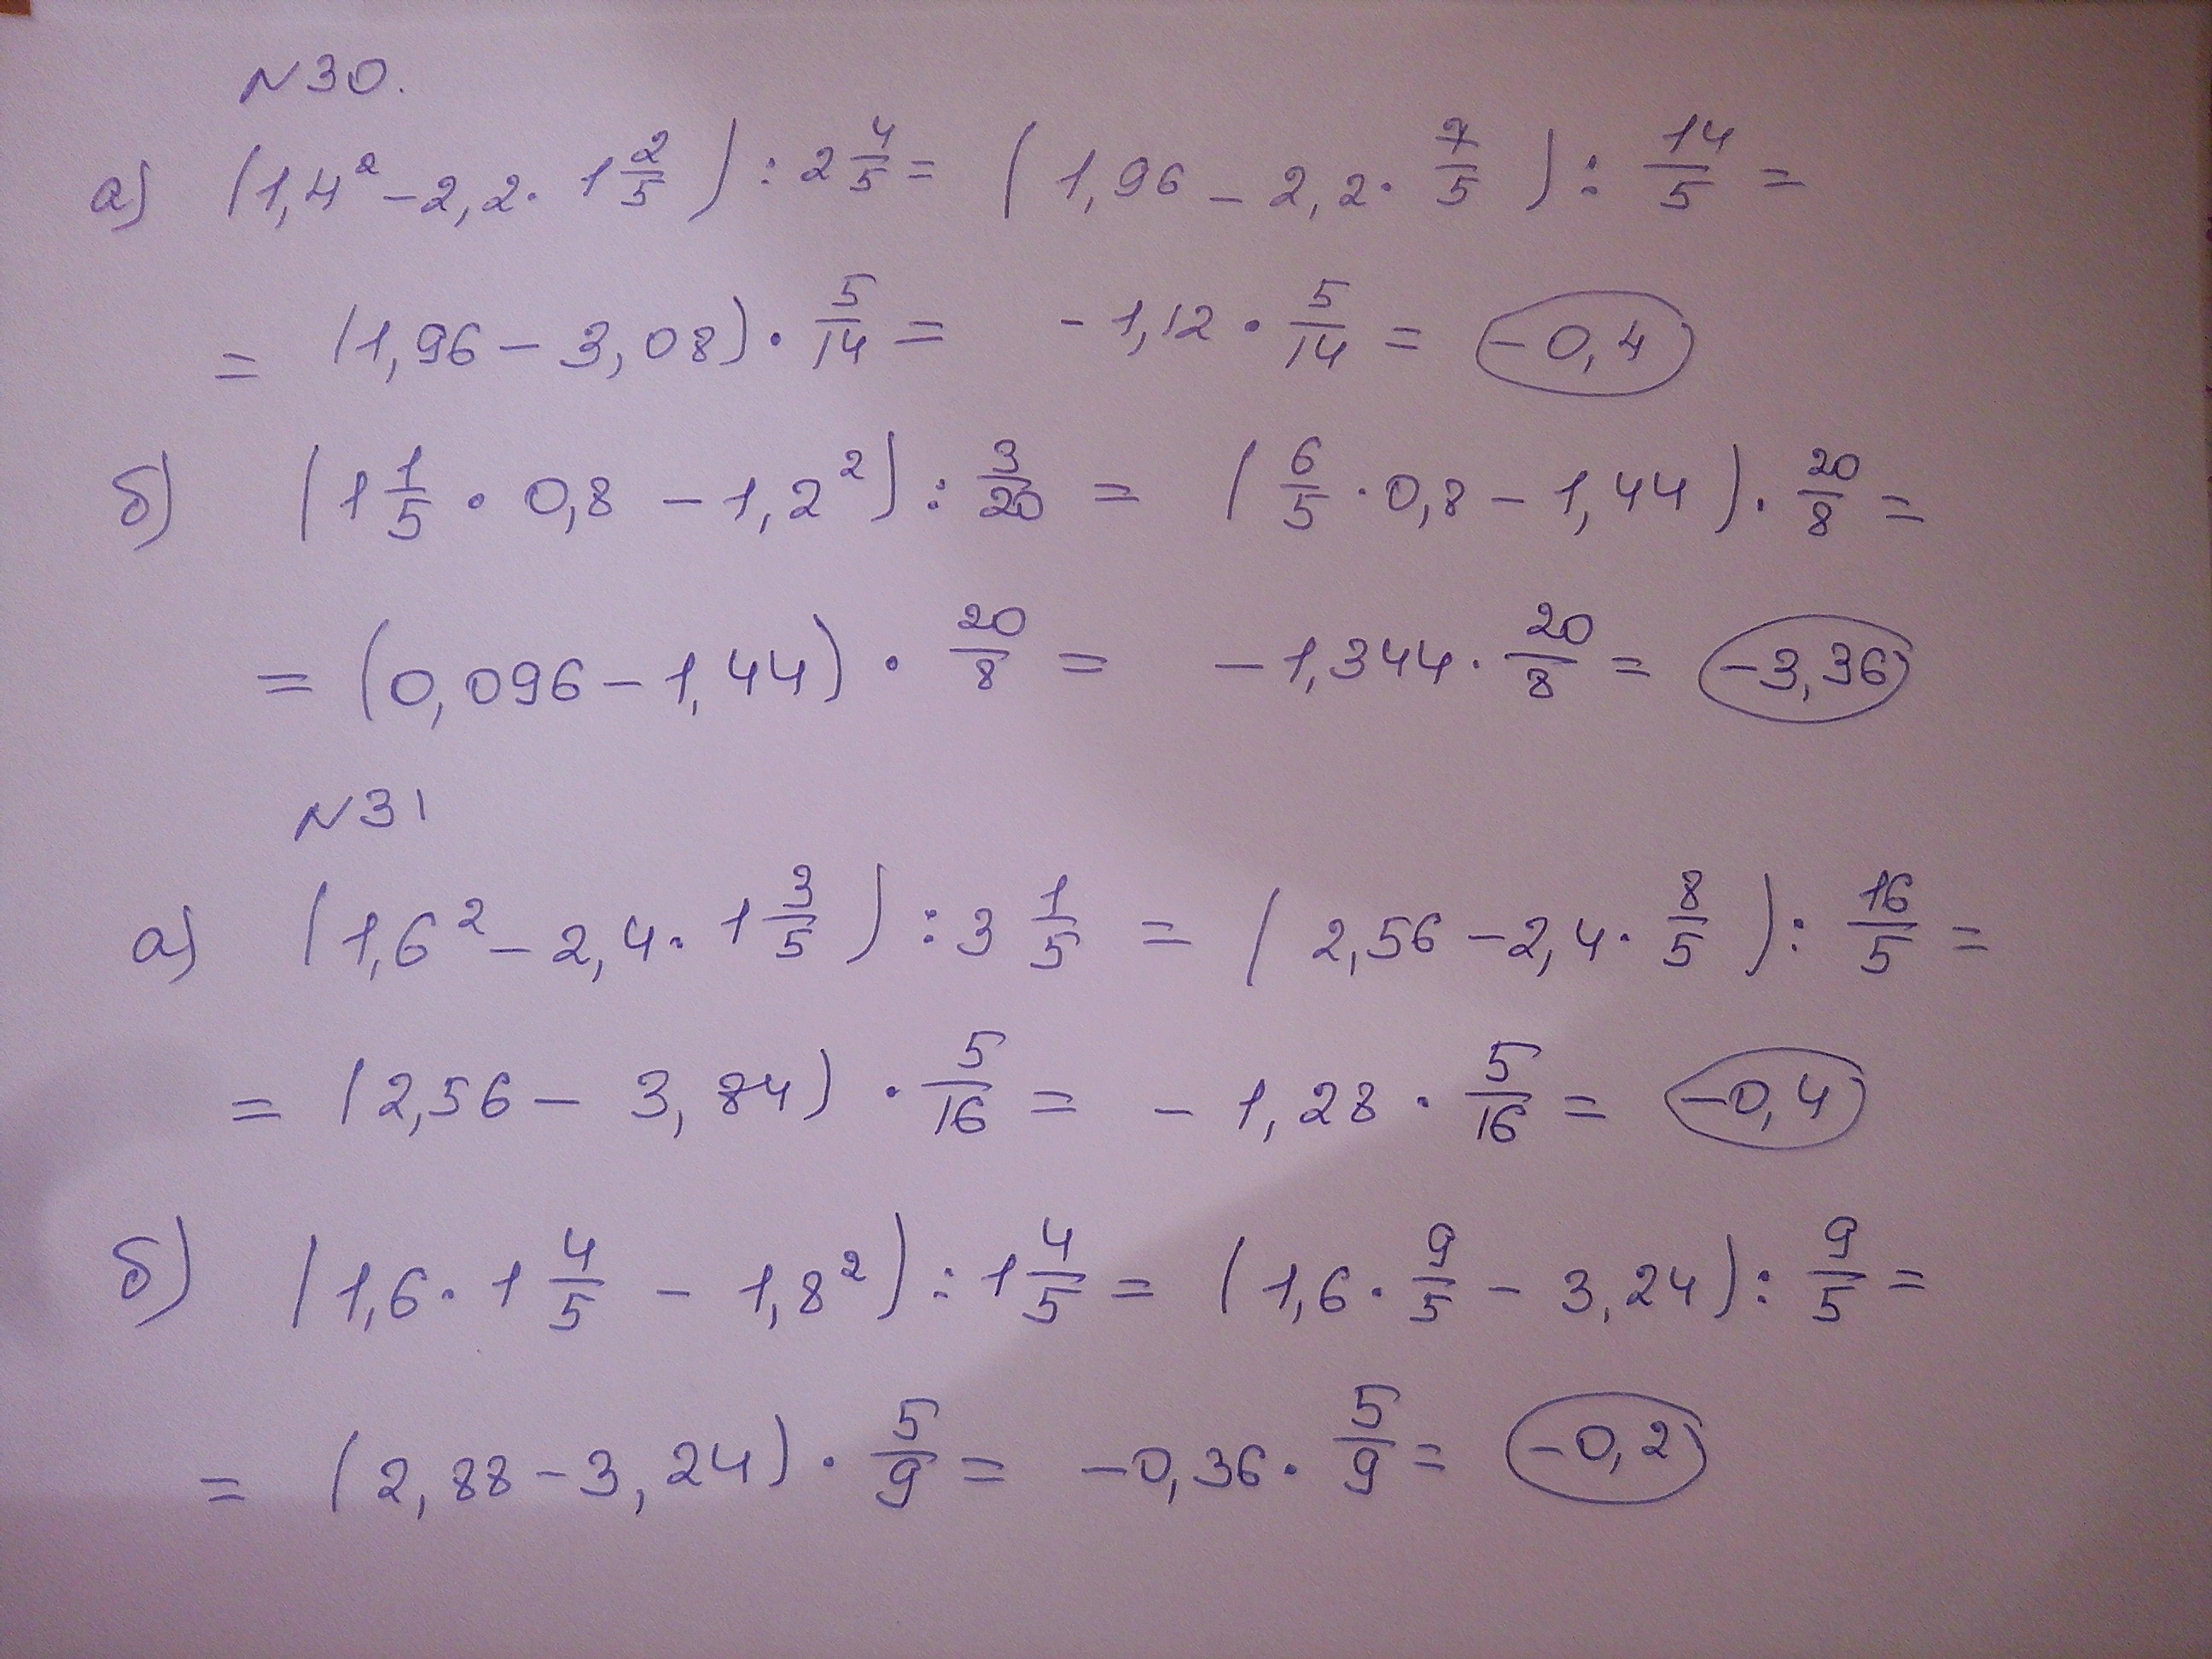 N30.
а) (1,4² - 2,2 · 1 2/5) : 2 4/5 = (1,96 - 2,2 · 7/5) : 14/5 =
= (1,96 - 3,08) · 5/14 = -1,12 · 5/14 = -0,4
б) (1 1/5 · 0,8 - 1,2²) : 3/20 = (6/5 · 0,8 - 1,44) · 20/8 =
= (0,096 - 1,44) · 20/8 = -1,344 · 20/8 = -3,36
N31
а) (1,6² - 2,4 · 1 3/5) : 3 1/5 = (2,56 - 2,4 · 8/5) : 16/5 =
= (2,56 - 3,84) · 5/16 = -1,28 · 5/16 = -0,4
б) (1,6 · 1 4/5 - 1,8²) : 1 4/5 = (1,6 · 9/5 - 3,24) : 9/5 =
= (2,88 - 3,24) · 5/9 = -0,36 · 5/9 = -0,2